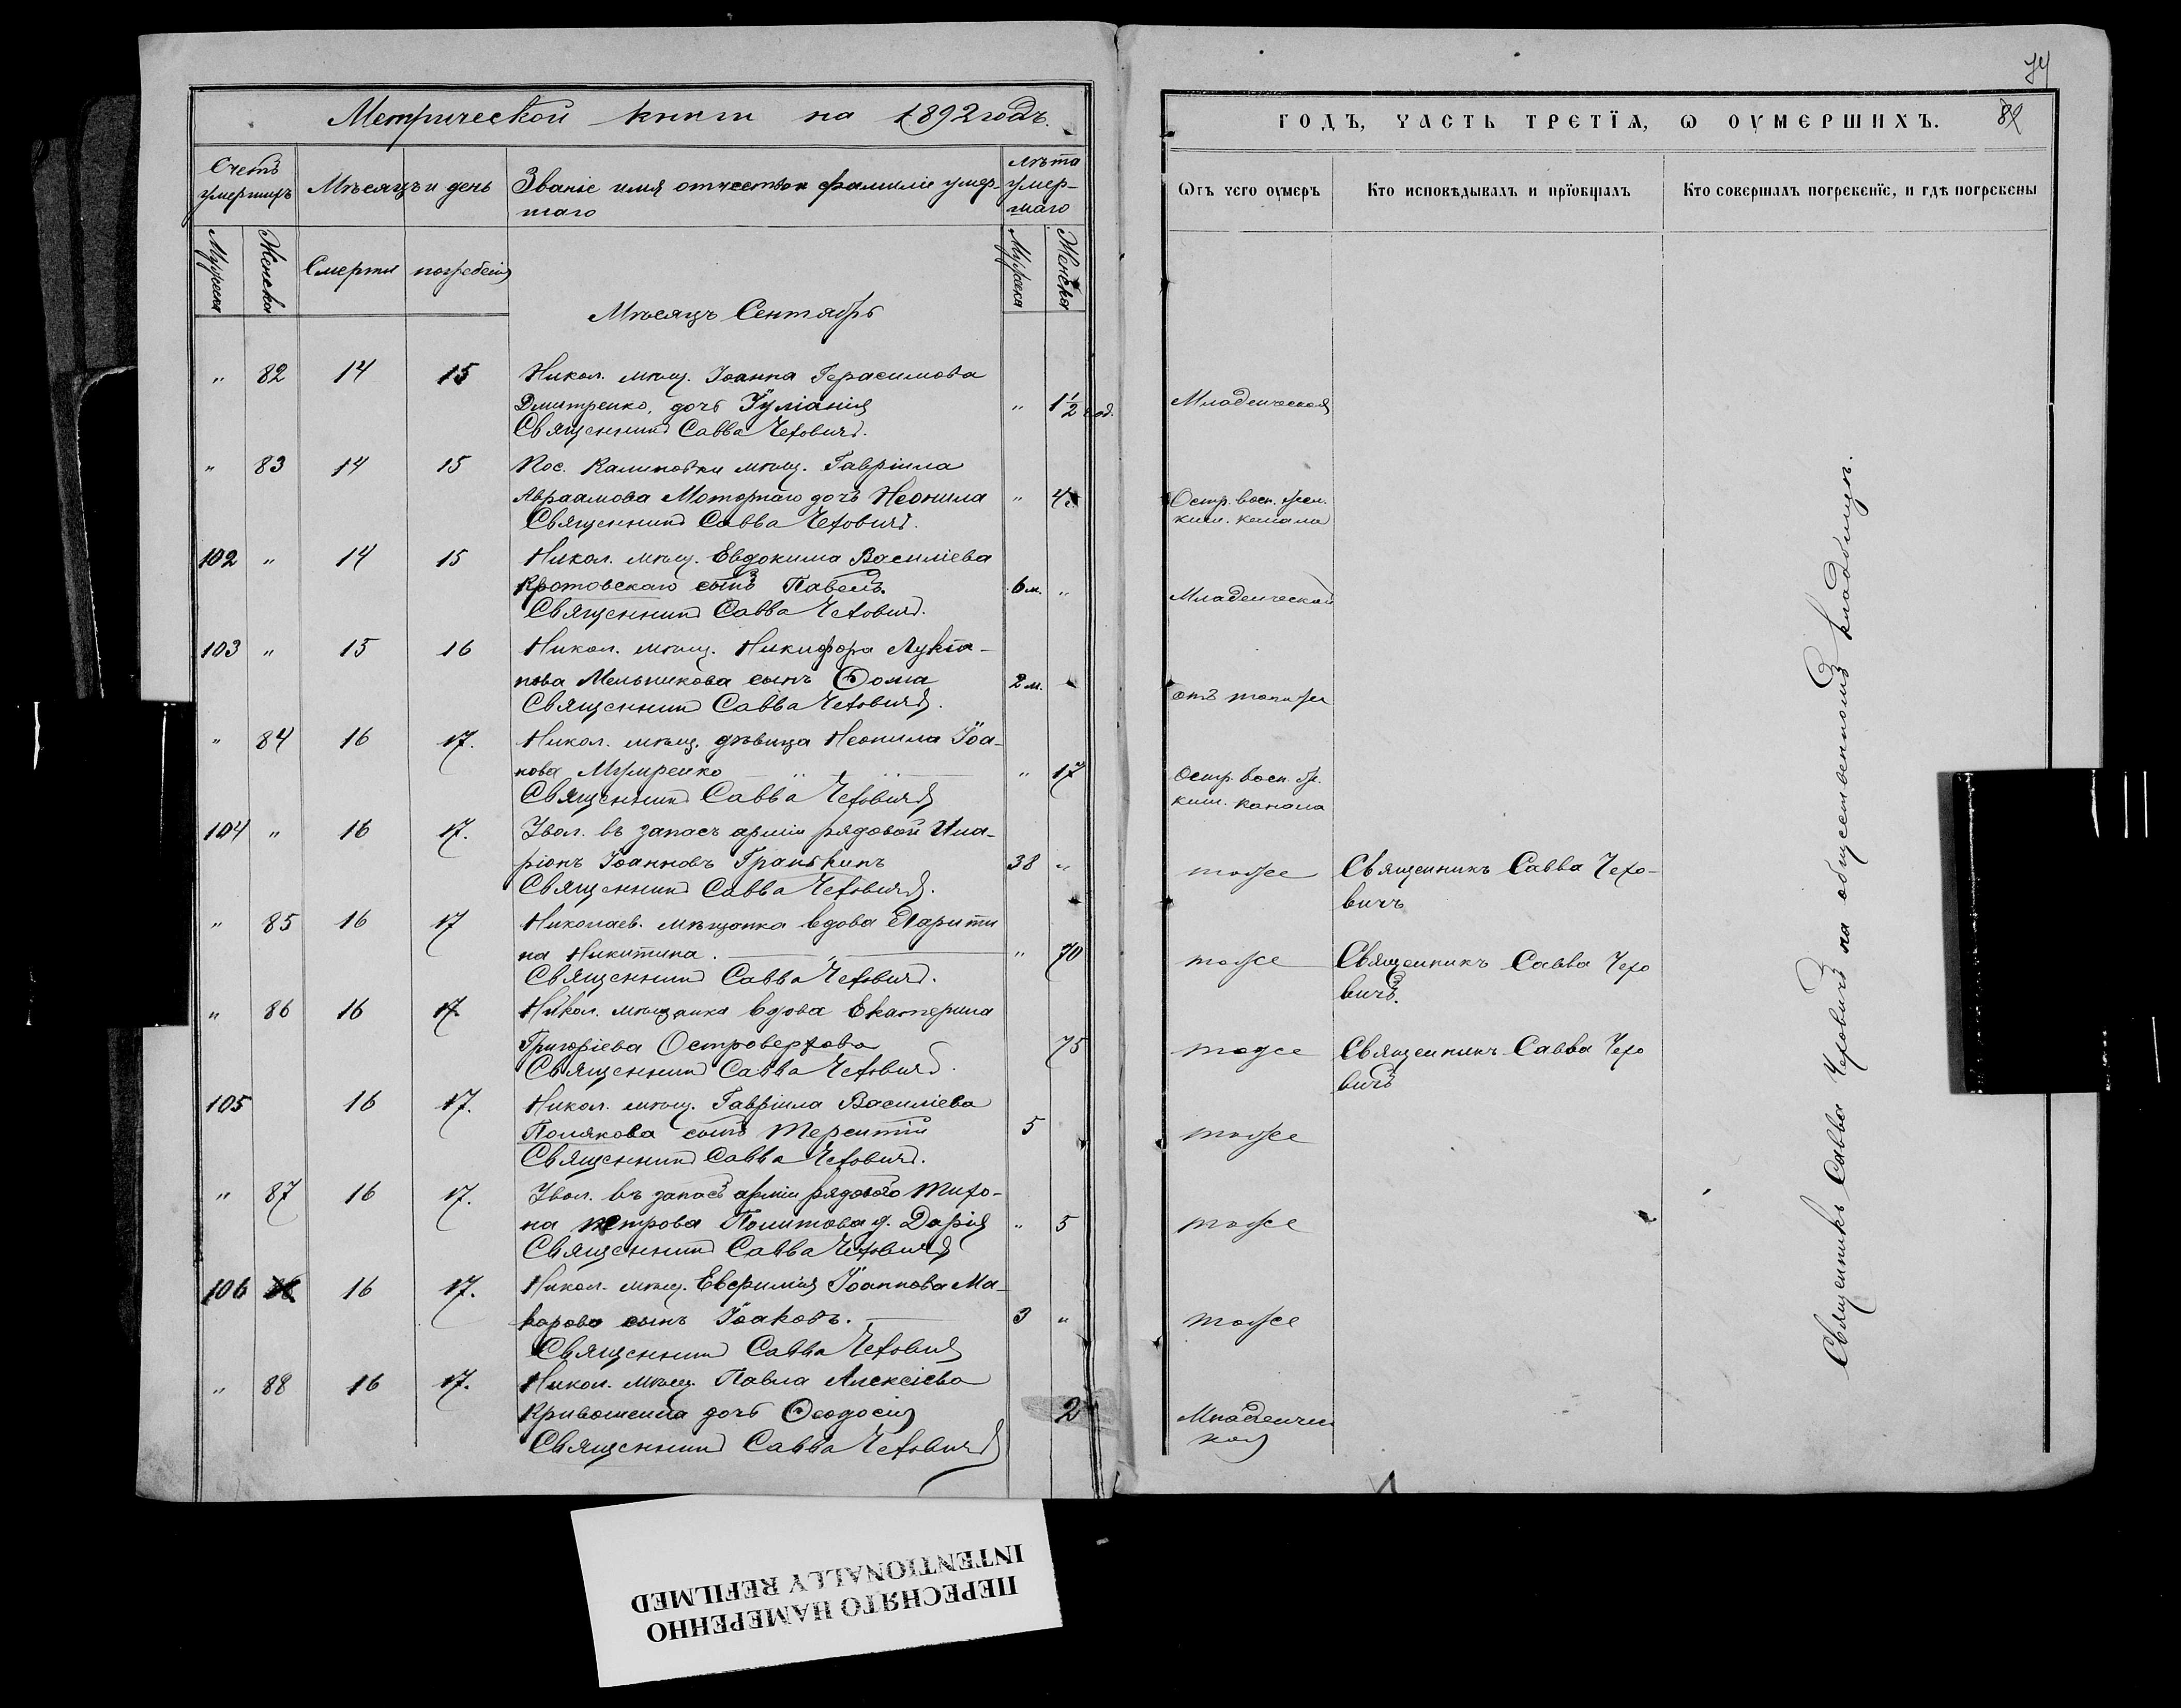 Метрической книги на 1892 годъ.
Счетъ умершихъ
Мѣсяцъ и день
Званіе имя отчество и фамилія умер-
шаго
Лѣта умер-
шаго
Мужеска
Женска
Смерти
погребенія
Мужска
Женска
Мѣсяцъ Сентябрь
" 82 14 15 Никол. мѣщ. Іоанна Герасимова
Дмитренко, дочь Іуліанія " 1½ год.
Священникъ Савва Чеховичъ.
" 83 14 15 Пос. Калиновки мѣщ. Гавріила
Авраамова Моторнаго дочь Неонила " 4
Священникъ Савва Чеховичъ.
102 " 14 15 Никол. мѣщ. Евдокима Василіева
Кротовскаго сынъ Павелъ. 6 м. "
Священникъ Савва Чеховичъ.
103 " 15 16 Никол. мѣщ. Никифора Лукіа-
нова Мельникова сынъ Ѳома 2 м.
Священникъ Савва Чеховичъ.
" 84 16 17. Никол. мѣщ. дѣвица Неонила Іоа-
нова " 17
Священникъ Савва Чеховичъ
104 " 16 17. Увол. въ запасъ арміи рядовой Ила-
ріонъ Іоанновъ 38 "
Священникъ Савва Чеховичъ.
" 85 16 17 Николаев. мѣщанка вдова Харити
на Никитина. " 70
Священникъ Савва Чеховичъ.
" 86 16 17. Никол. мѣщанка вдова Екатерина
Григоріева Островерхова 75
Священникъ Савва Чеховичъ.
105 16 17. Никол. мѣщ. Гавріила Василіева
Полякова сынъ Терентій 5
Священникъ Савва Чеховичъ.
" 87 16 17. Увол. въ запасъ арміи рядового Тихо-
на Петрова Политова д. Дарія " 5
Священникъ Савва Чеховичъ
106 16 17. Никол. мѣщ. Евѳимія Іоаннова Ма-
карова сынъ Іоаковъ. 3 "
Священникъ Савва Чеховичъ
" 88 16 17. Никол. мѣщ. Павла Алексіева
Кривошеина дочь Ѳеодосія 2
Священникъ Савва Чеховичъ
74
ГОДЪ, ЧАСТЬ ТРЕТЇѦ, Ѡ ОУМЕРШИХЪ.
Ѡтъ чего оумеръ
Кто исповѣдывалъ и прїобщалъ
Кто совершалъ погребенїе, и гдѣ погребены
Младенческой
Остр. восп. жел.
киш. канала
Младенческой
отъ тоже
Остр. восп. ж.
киш. канала
тоже Священникъ Савва Чехо-
вичъ
тоже Священникъ Савва Чехо
вичъ.
тоже Священникъ Савва Чехо
вичъ
тоже
тоже
тоже
Младенчес
кой
Священникъ Савва Чеховичъ на общественномъ кладбищѣ.
ПЕРЕСНЯТО НАМЕРЕННО
INTENTIONALLY REFILMED